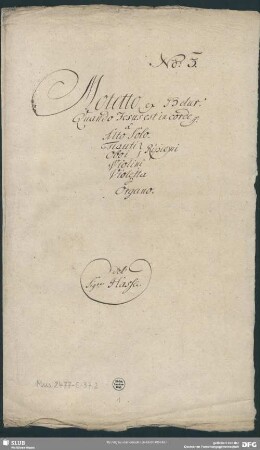 No: 3.
Motetto ex B dur.
Quando Jesus est in corde
à
Alto Solo.
Flauti
Oboi
Violini
Violetta
Organo.
del
Sigr. Hasse.
Mus. 2477-E-
SLUB
DFG